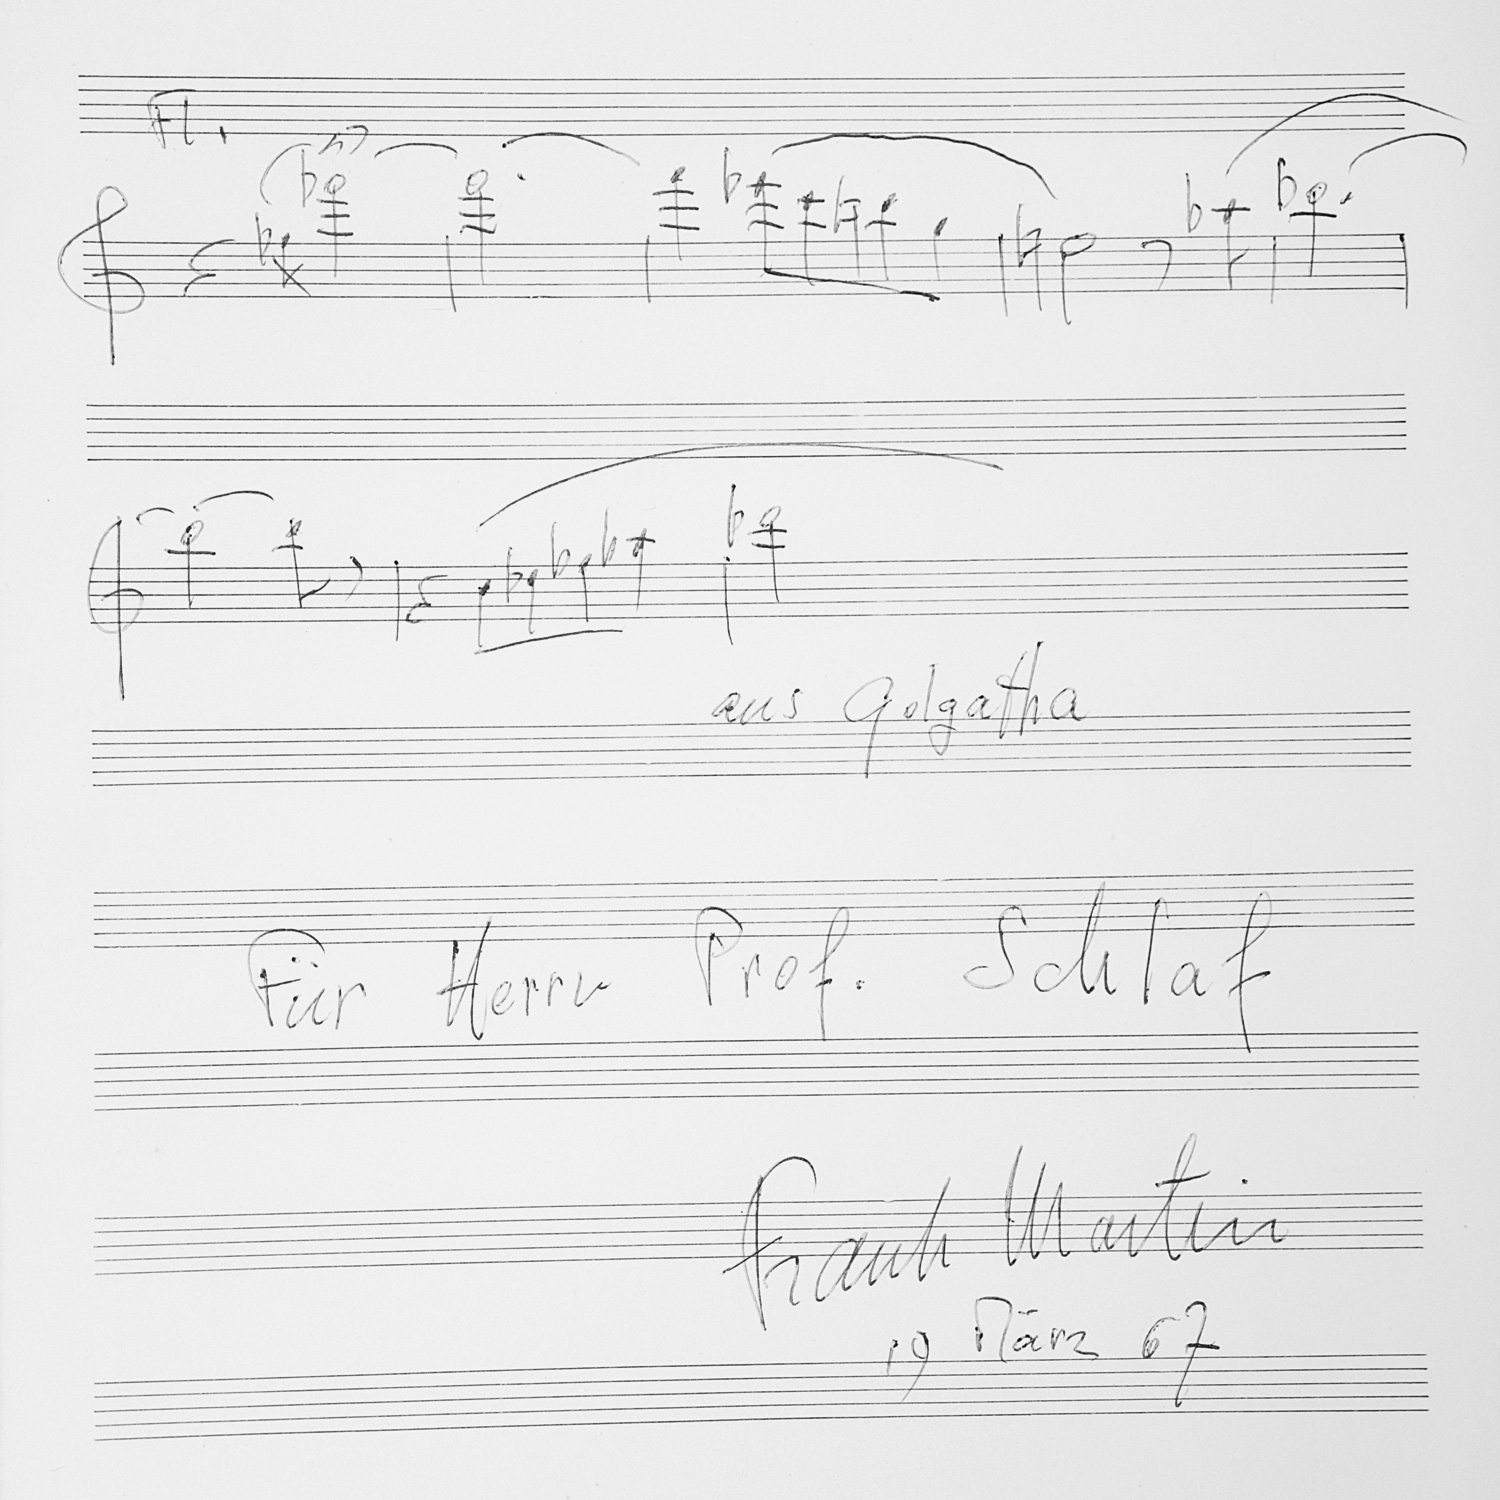 Fl.
aus Golgatha
Für Herrn Prof. Schlaf
Frank Martin
19 März 67